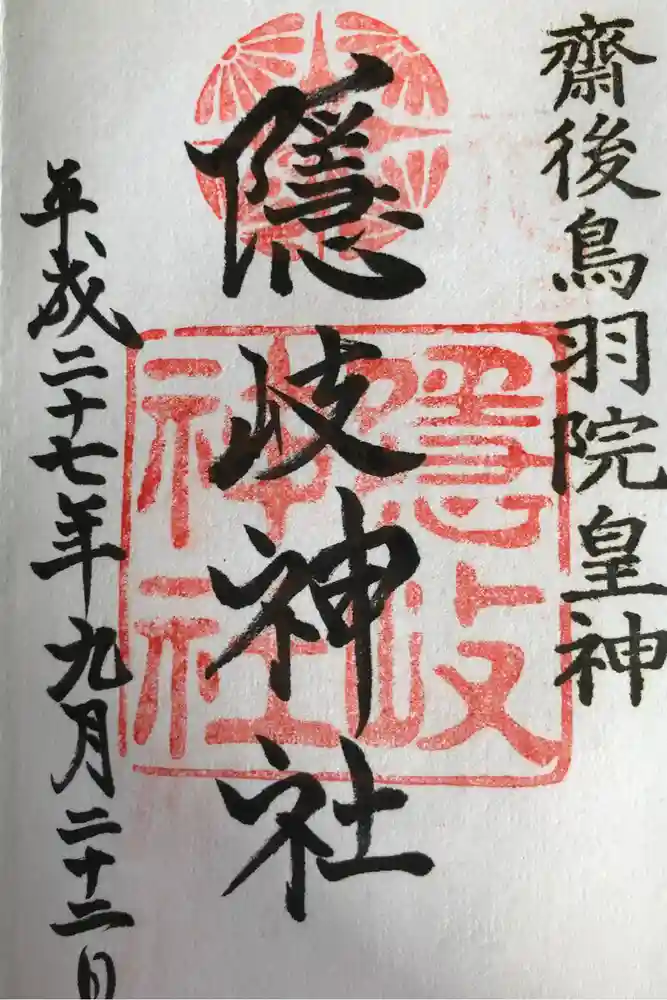 齋後鳥羽院皇神
隱岐神社
平成二十七年九月二十二日
隱岐
神社